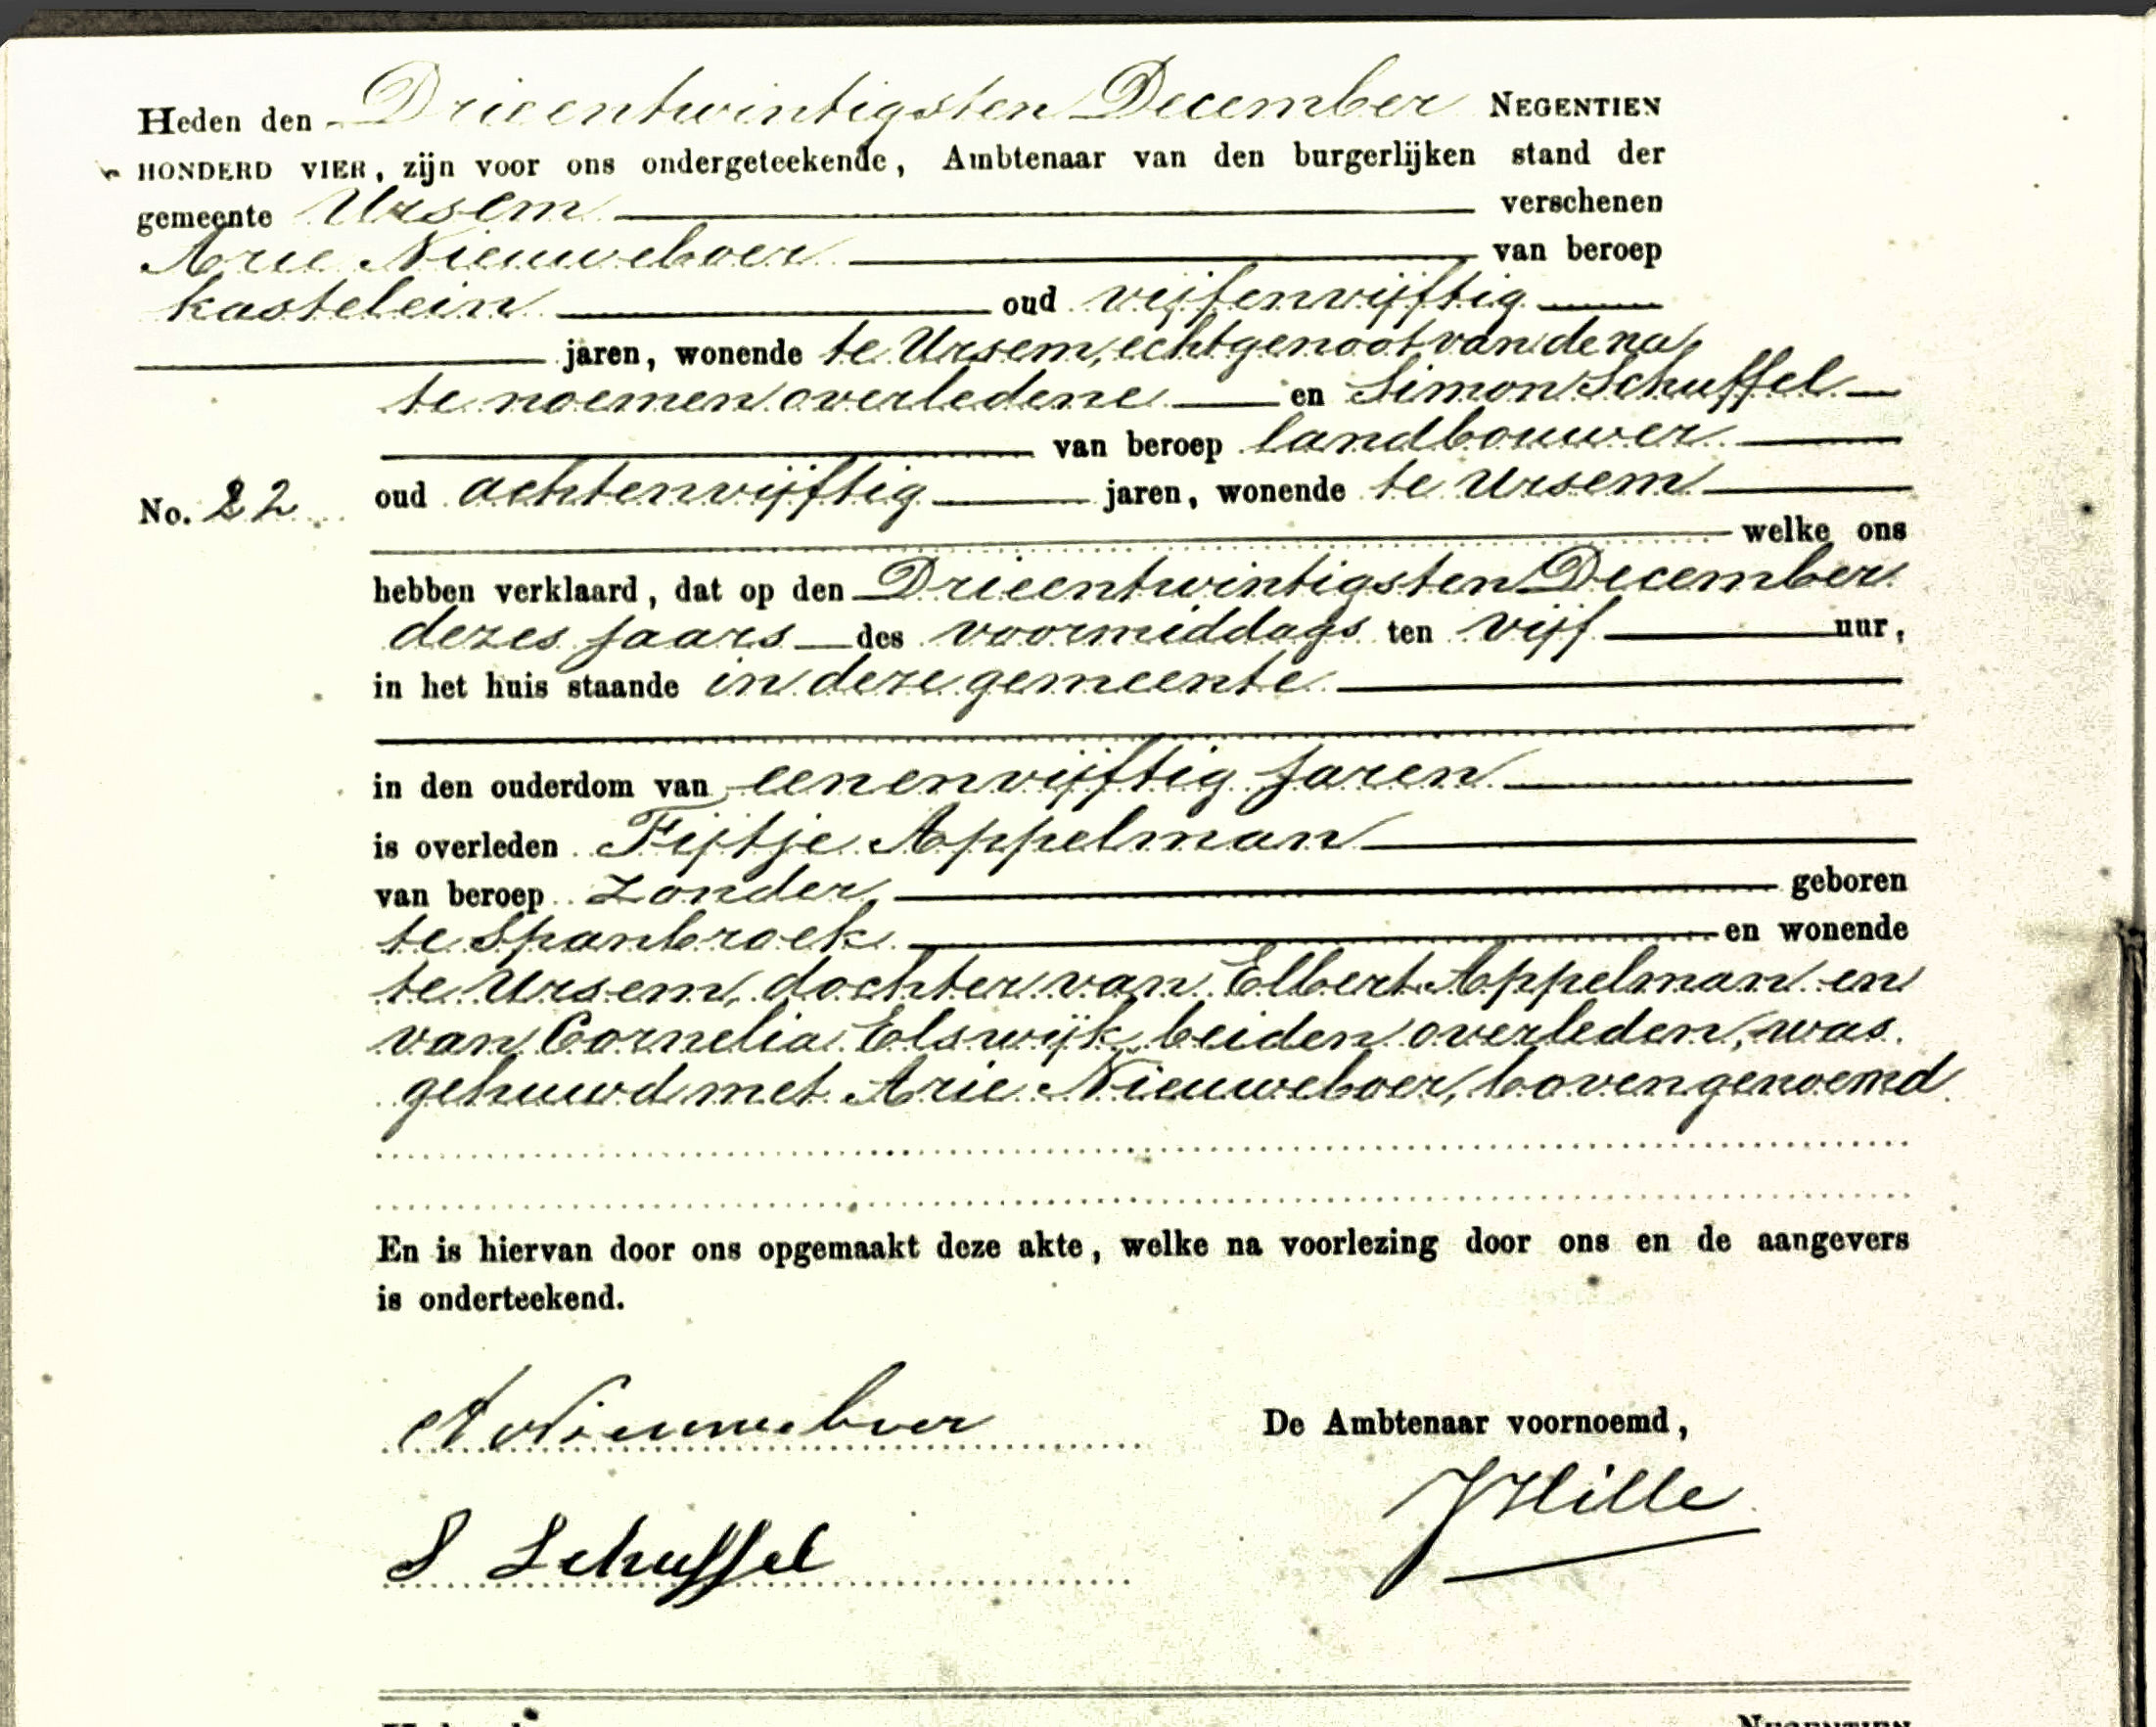 Heden den Drieentwintigsten December NEGENTIEN
HONDERD VIER, zijn voor ons ondergeteekende, Ambtenaar van den burgerlijken stand der
gemeente Ursem verschenen
Arie Nieuweboer van beroep
kastelein oud vijfenvijftig
jaren, wonende te Ursem, echtgenoot van de na
te noemen overledene en Simon Schuffel
van beroep landbouwer
No. 22 oud achtenvijftig jaren, wonende te Ursem
welke ons
hebben verklaard, dat op den Drieentwintigsten December
dezes jaars des voormiddags ten vijf uur,
in het huis staande in deze gemeente
in den ouderdom van eenenvijftig jaren
is overleden Fijtje Appelman
van beroep zonder geboren
te Spanbroek en wonende
te Ursem, dochter van Elbert Appelman en
van Cornelia Elswijk, beiden overleden, was
gehuwd met Arie Nieuweboer, bovengenoemd
En is hiervan door ons opgemaakt deze akte, welke na voorlezing door ons en de aangevers
is onderteekend.
A Nieuweboer
De Ambtenaar voornoemd,
JHille
S Schuffel
NEGENTIEN